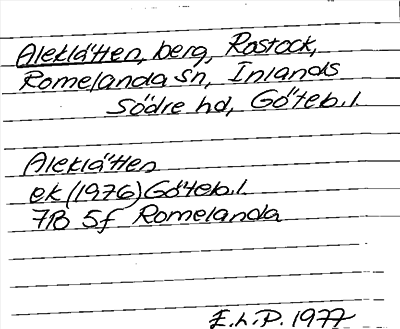 Aleklätten, berg, Rostock,
Romelanda sn, Inlands
Södre hd, Göteb.l.
Aleklätten
ek (1976) Göteb.l.
7B 5f Romelanda
E.h.P. 1977